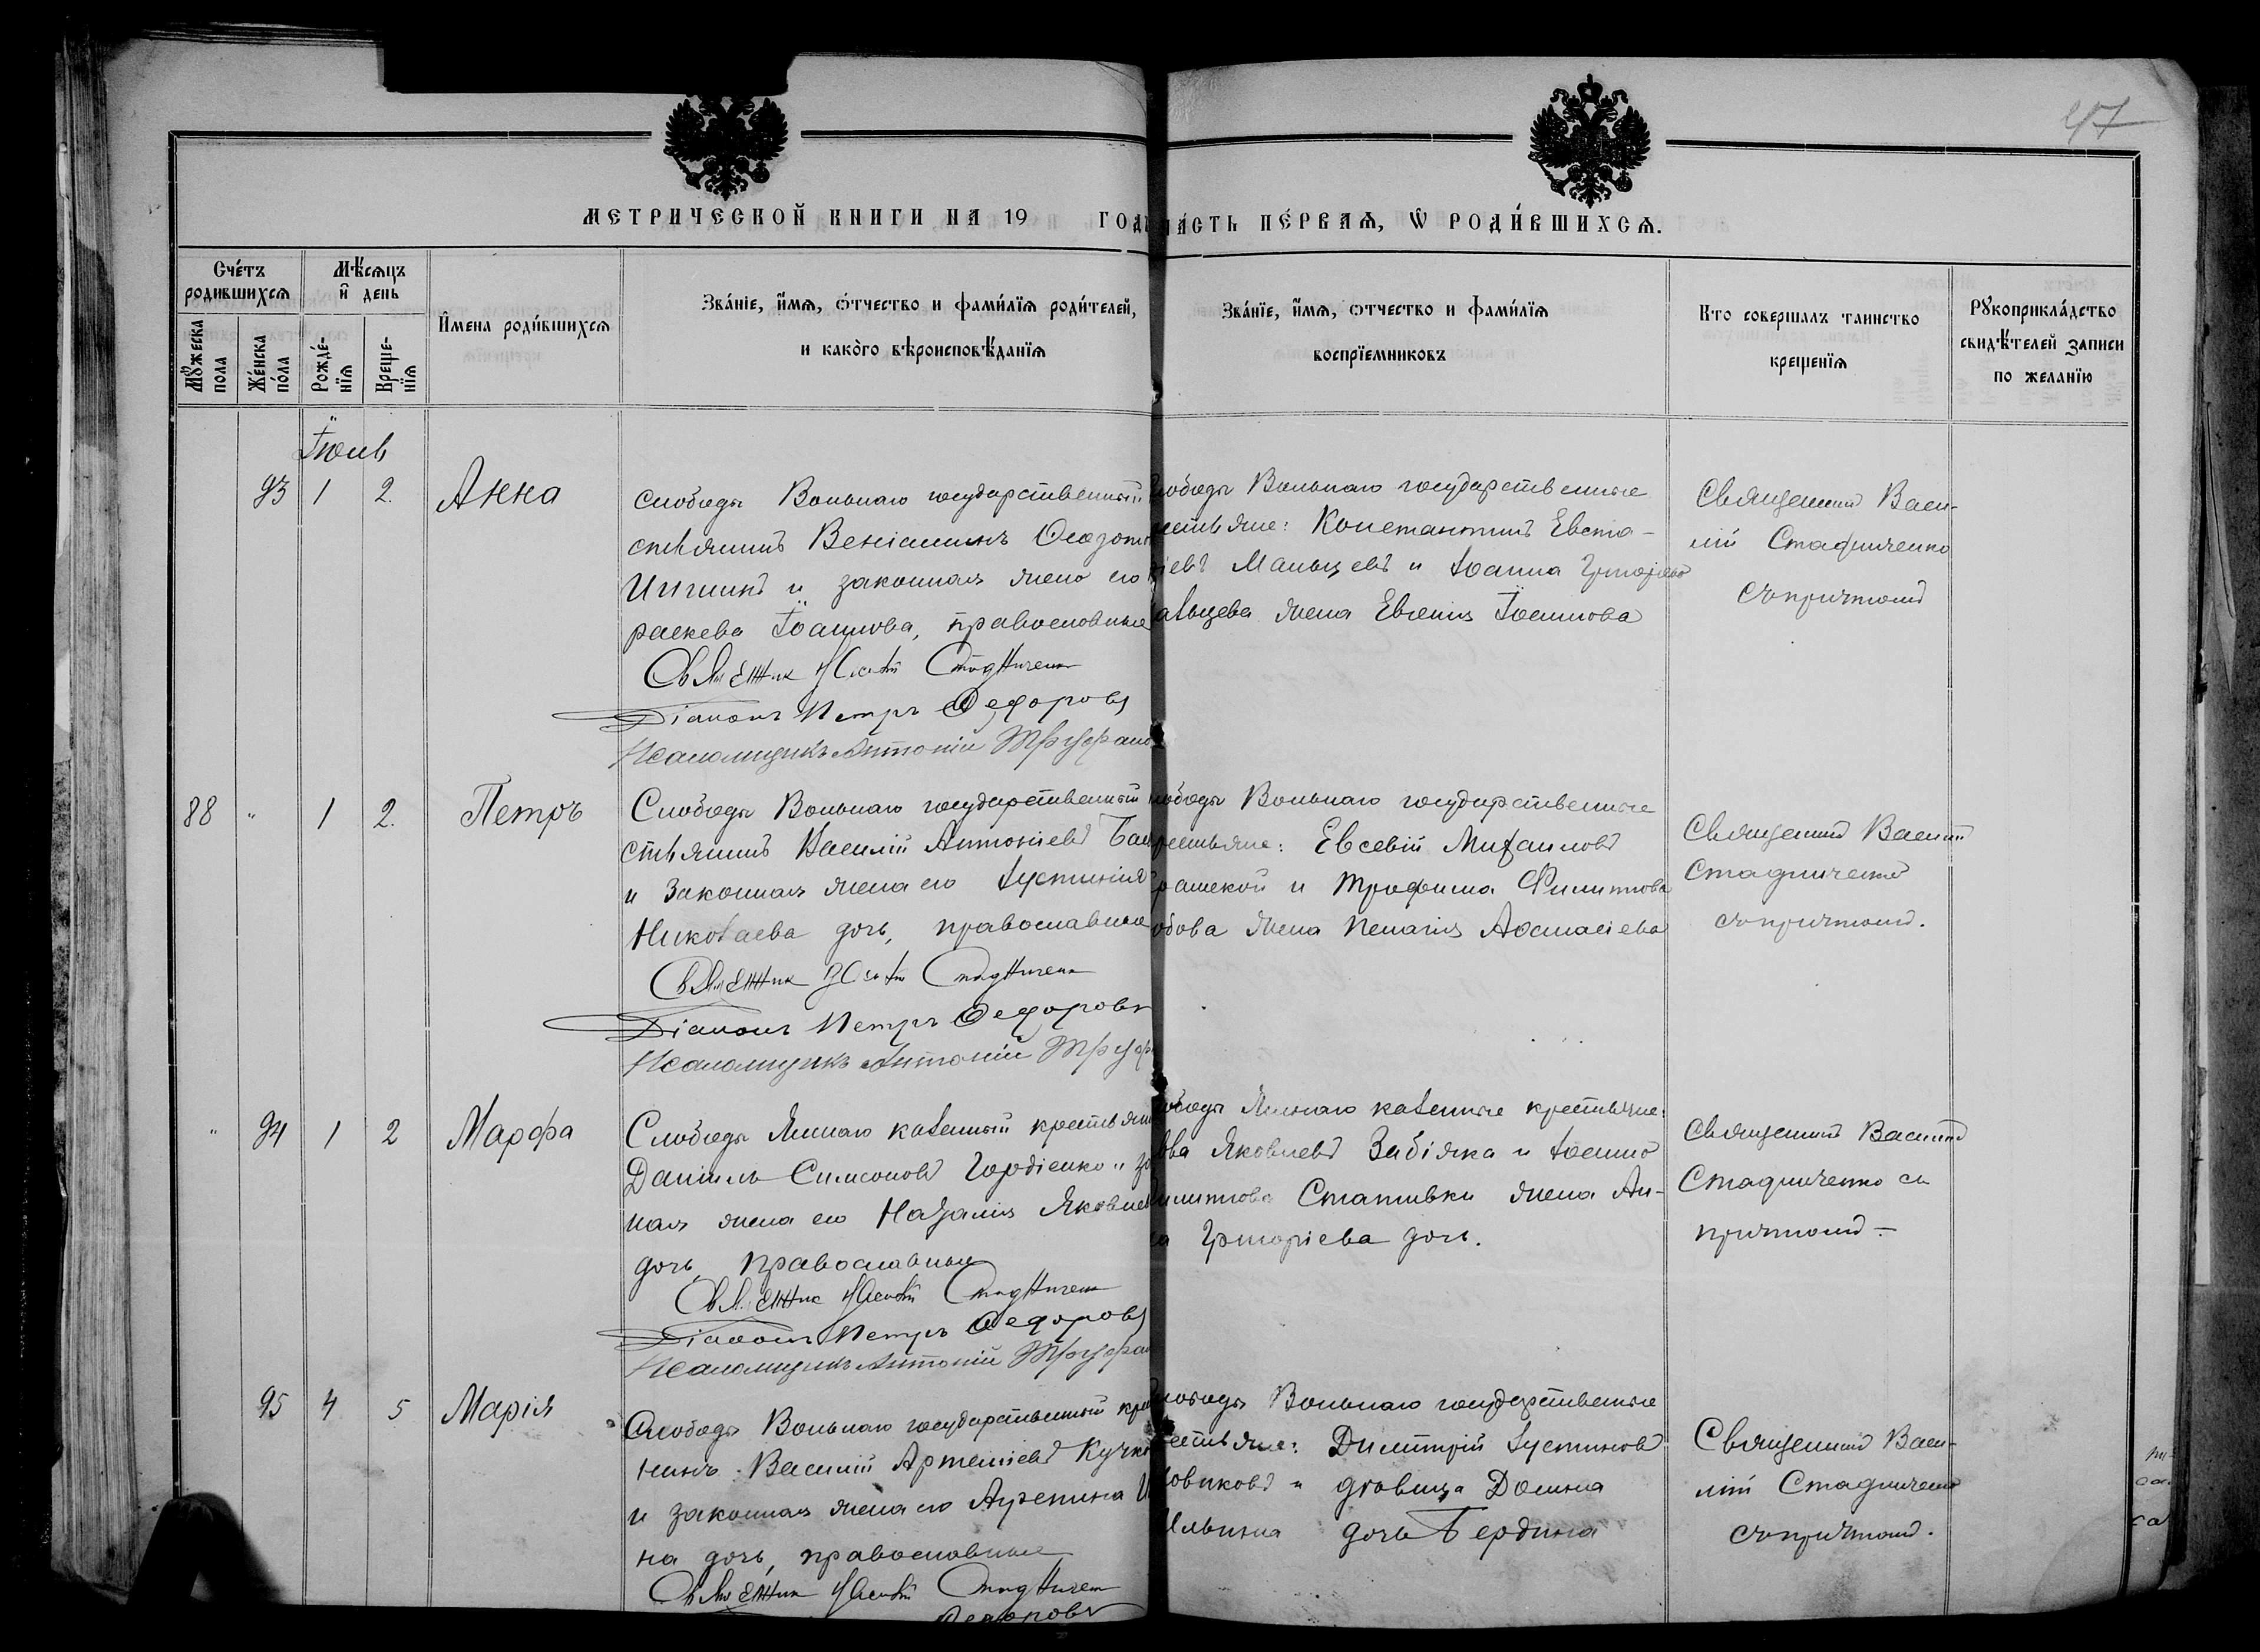 47
МЕТРИЧЕСКОЙ КНИГИ НА 19 ГОДЪ
ЧАСТЬ ПЕРВАЯ, Ѡ РОДИВШИХСЯ.
Счетъ родившихся
Мужеска пола
Женска пола
Мѣсяцъ и день
Рожденія
Крещенія
Имена родившихся
Званіе, имя, отчество и фамилія родителей,
и какого вѣроисповѣданія
Званіе, имя, отчество и фамилія
воспріемниковъ
Кто совершалъ таинство
крещенія
Рукоприкладство
свидѣтелей записи
по желанію
93 1 2. Анна
Слободы Вольнаго государственный
стьянинъ Веніаминъ
и законная жена его
раскева Іоаннова, православные
Священник Стадниченко
Діаконъ Петръ Ѳедоровъ
Псаломщикъ Антоній
Слободы Вольнаго государственные
крестьяне: Константинъ Евста-
Мальцевъ и Іоанна Григорьева
жена Евгенія Іоаннова
Священникъ Васи-
лій Стадниченко
съ причтомъ
88 " 1 2. Петръ
Слободы Вольнаго государственный
стьянинъ Василій Антоніевъ
и законная жена его Іустинія
Николаева дочь, православные
Священник Стадниченко
Діаконъ Петръ Ѳедоровъ
Псаломщикъ Антоній
Слободы Вольнаго государственные
крестьяне: Евсевій Михаиловъ
и Трофима Филиппова
жена Пелагія Аѳанасіева
Священникъ Василій
Стадниченко
съ причтомъ.
" 94 1 2 Марфа
Слободы Ямнаго казенный крестьянинъ
Даніилъ Симеоновъ Гордіенко и
ная жена его Наталія Яковлева
дочь, православные
Священник Стадниченко
Діаконъ Петръ Ѳедоровъ
Псаломщикъ Антоній
Слободы Ямнаго казенные крестьяне:
Яковлевъ Забіяка и Іоанна
Филиппова Стативки жена Ан-
на Григоріева дочь.
Священникъ Василій
Стадниченко съ
причтомъ. —
95 4 5 Марія
Слободы Вольнаго государственный
нинъ Василій Артеміевъ
и законная жена его Агрепина
на дочь, православные
Священник Стадниченко
Ѳедоровъ
Слободы Вольнаго государственные
крестьяне: Димитрій Іустиновъ
и дѣвица Домна
Ильина дочь Бердина
Священникъ Васи-
лій Стадниченко
съ причтомъ.